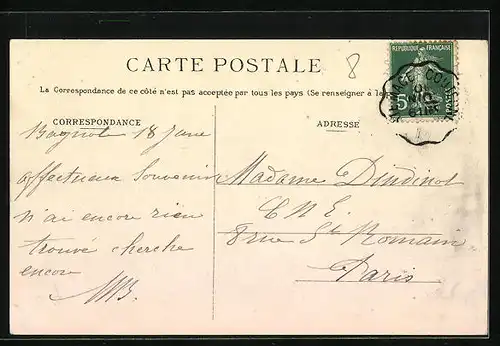 CARTE POSTALE
8
La Correspondance de ce côté n'est pas acceptée par tous les pays (Se renseigner à la
RÉPUBLIQUE FRANÇAISE
5
CORRESPONDANCE
ADRESSE
Bagnol 18 June
affectueux Souvenir
n'ai encore rien
trouvé cherche
encore
MB.
Madame Dindinot
C N E.
8 rue St Romain
Paris